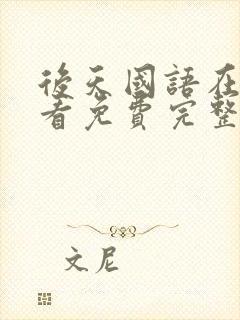 後天國語在
看免費完整
文尼